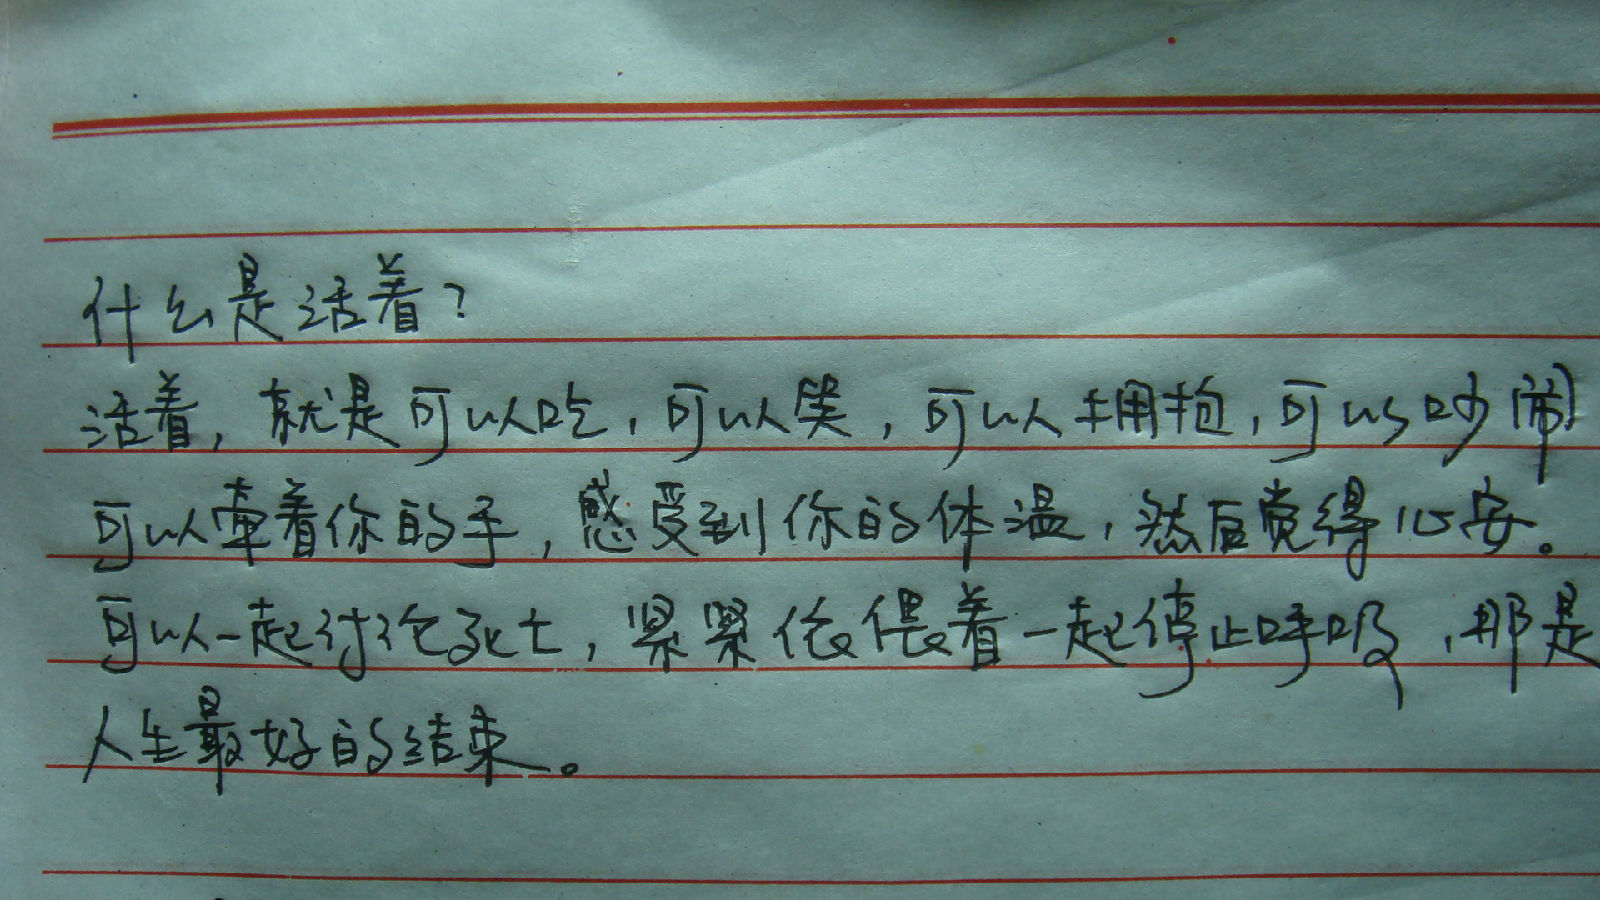 什么是活着?
活着,就是可以吃,可以笑,可以拥抱,可以吵闹
可以牵着你的手,感受到你的体温,然后觉得心安。
可以一起讨论死亡,紧紧依偎着一起停止呼吸,那是
人生最好的结束。